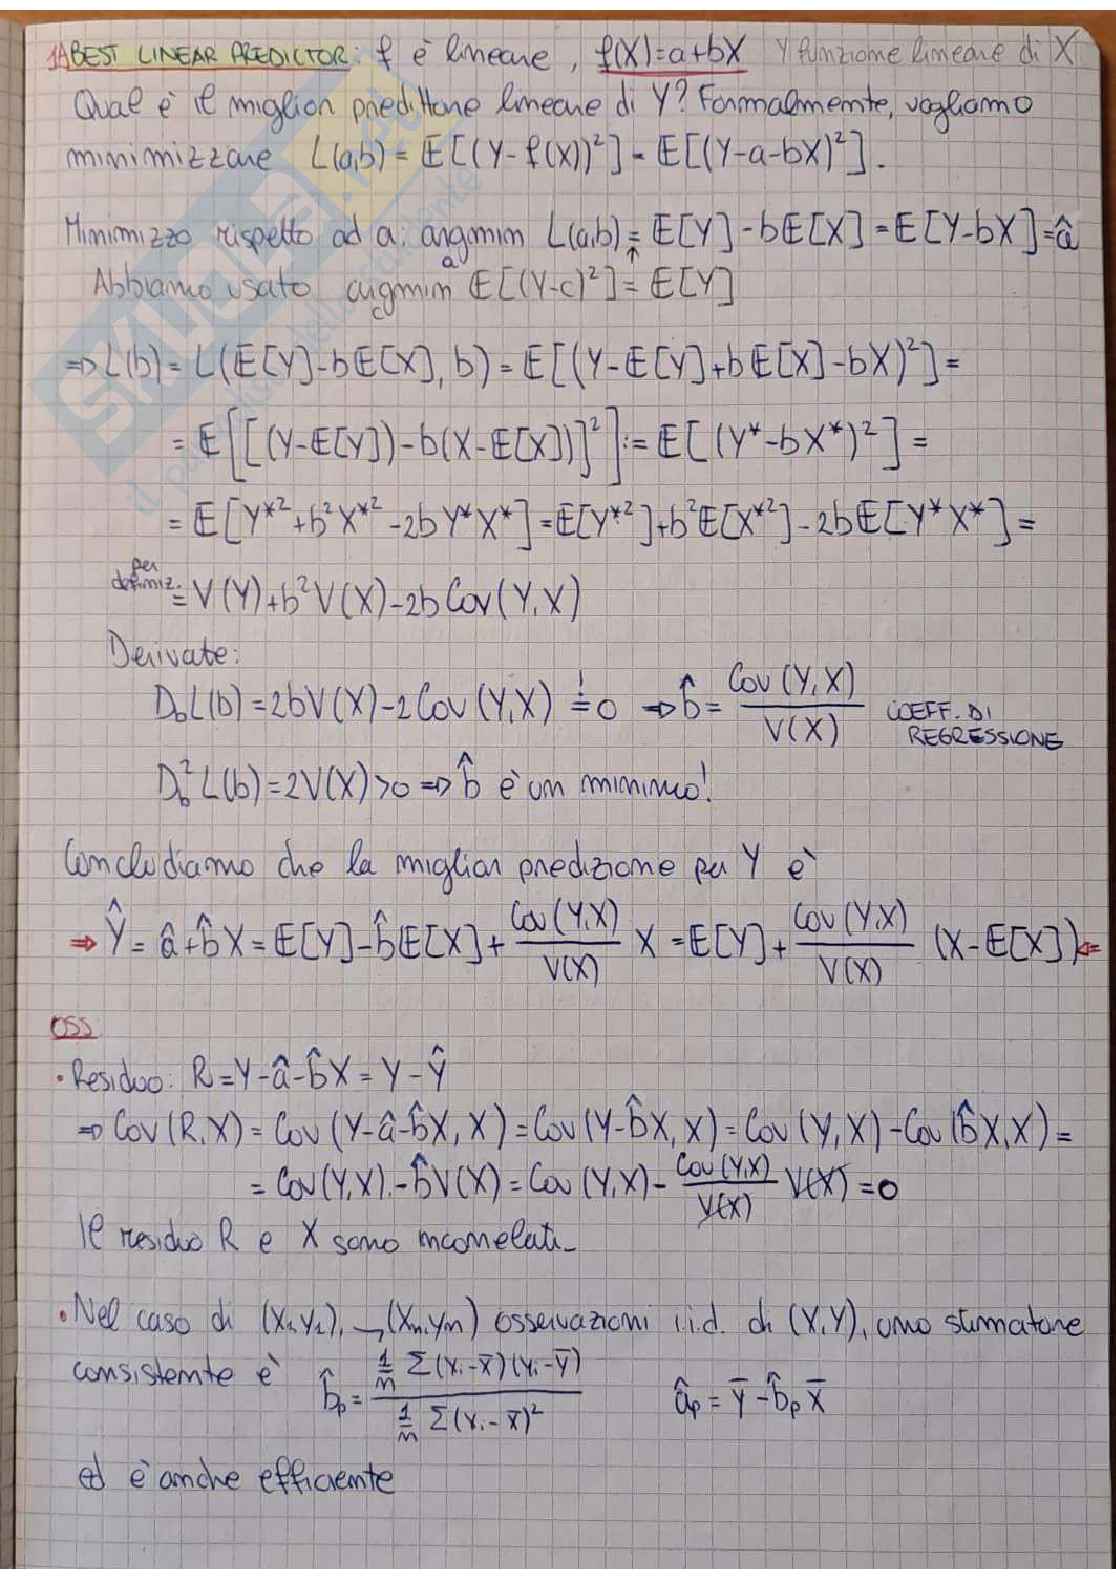 1) BEST LINEAR PREDICTOR: f è lineare, f(X)=a+bX Y funzione lineare di X
Qual è il miglior predittore lineare di Y? Formalmente, vogliamo
minimizzare L(a,b) = E[(Y-f(X))²] = E[(Y-a-bX)²].
Minimizzo rispetto ad a: argmin_a L(a,b) = E[Y]-bE[X] = E[Y-bX] = â
↑
Abbiamo usato argmin_c E[(Y-c)²] = E[Y]
⇒ L(b) = L(E[Y]-bE[X], b) = E[(Y-E[Y]+bE[X]-bX)²] =
= E[[(Y-E[Y])-b(X-E[X])]²] := E[(Y*-bX*)²] =
= E[Y*²+b²X*²-2bY*X*] = E[Y*²]+b²E[X*²]-2bE[Y*X*] =
per definiz. = V(Y)+b²V(X)-2bCov(Y,X)
Derivate:
D_b L(b) = 2bV(X)-2Cov(Y,X) =! 0 ⇒ b̂ = Cov(Y,X)/V(X) COEFF. DI REGRESSIONE
D²_b L(b) = 2V(X)>0 ⇒ b̂ è un minimo!
Concludiamo che la miglior predizione per Y è
⇒ Ŷ = â+b̂X = E[Y]-b̂E[X]+ Cov(Y,X)/V(X) X = E[Y]+ Cov(Y,X)/V(X) (X-E[X]) ⇐
OSS
• Residuo: R=Y-â-b̂X = Y-Ŷ
⇒ Cov(R,X) = Cov(Y-â-b̂X, X) = Cov(Y-b̂X, X) = Cov(Y,X)-Cov(b̂X,X) =
= Cov(Y,X)-b̂V(X) = Cov(Y,X)- Cov(Y,X)/V(X) V(X) = 0
Il residuo R e X sono incorrelati.
• Nel caso di (X₁,Y₁), →(Xn,Yn) osservazioni i.i.d. di (X,Y), uno stimatore
consistente è b̂p = 1/n Σ(Xi-X̄)(Yi-Ȳ) / 1/n Σ(Xi-X̄)² âp = Ȳ-b̂p X̄
ed è anche efficiente